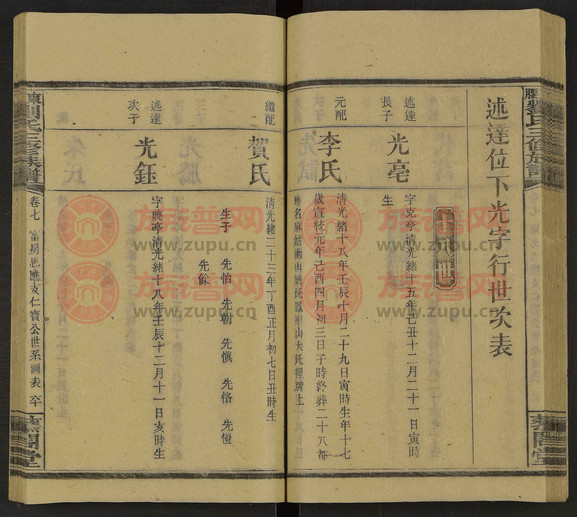 述達位下光字行世次表
述達
長子
光亳
字克亭清光緒十五年己丑十二月二十一日寅時
生
元配
李氏
清光緒十八年壬辰十月二十九日寅時生年十七
歲宣統元年己酉四月初三日子時終葬二十八都
繼配
賀氏
清光緒二十三年丁酉正月初七日丑時生
生子 先怡 先朝 先慎 先恪 先愷
先馀
述達
次子
光鈺
字曉亭清光緒十八年壬辰十二月十一日亥時生
劉氏三修族譜
卷七
富房思應支仁寶公世系圖表
族谱网
www.zupu.cn
族谱网
www.zupu.cn
族谱网
www.zupu.cn
族谱网
www.zupu.cn